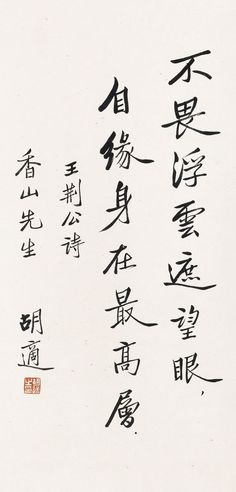 不畏浮雲遮望眼，
自緣身在最高層．
王荊公詩
香山先生
胡適